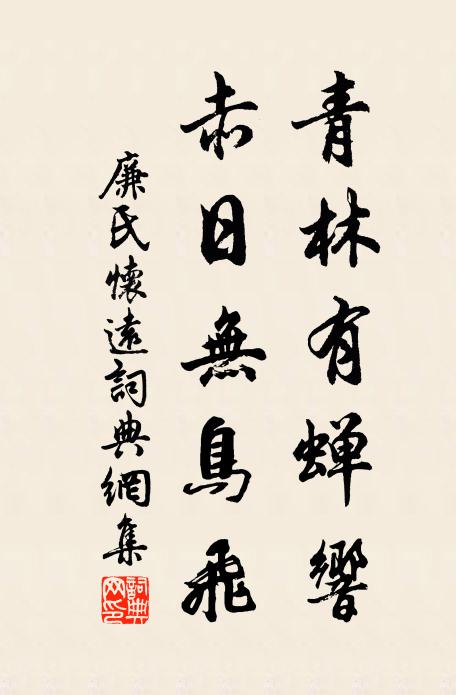 青林有蝉響
赤日無鳥飛
廉氏懷遠詞典網集
詞典网印